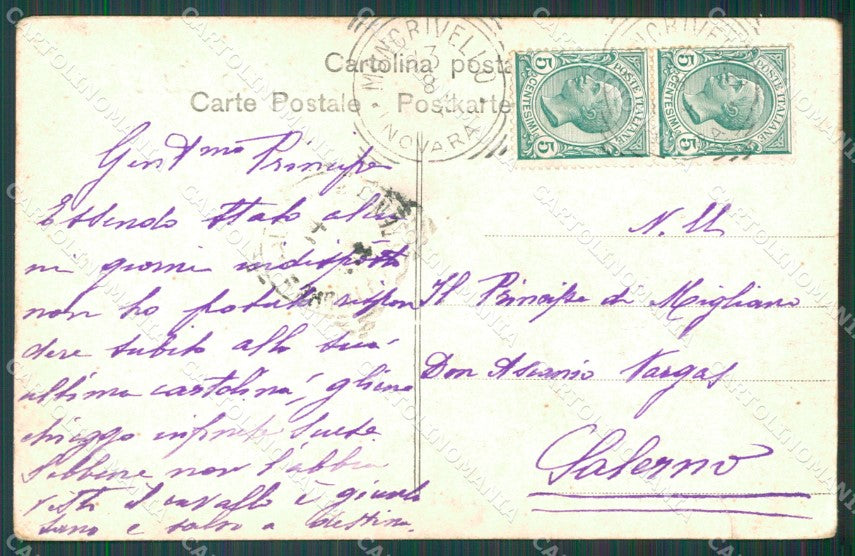 Cartolina posta
Carte Postale Postkarte
MONCRIVELLO
13
8
NOVARA
5 CENTESIMI 5
POSTE ITALIANE
5 CENTESIMI 5
POSTE ITALIANE
Principe
Essendo stato alcu
ni giorni indisposto
non ho potuto rispon
dere subito alla sua
ultima cartolina, gliene
chieggo infinite scuse.
Sebbene non l'abbia
visto il cavallo è giunto
sano e salvo a destina.
N. H.
Il Principe di Migliano
Don Ascanio Vargas
Salerno
CARTOLINOMANIA